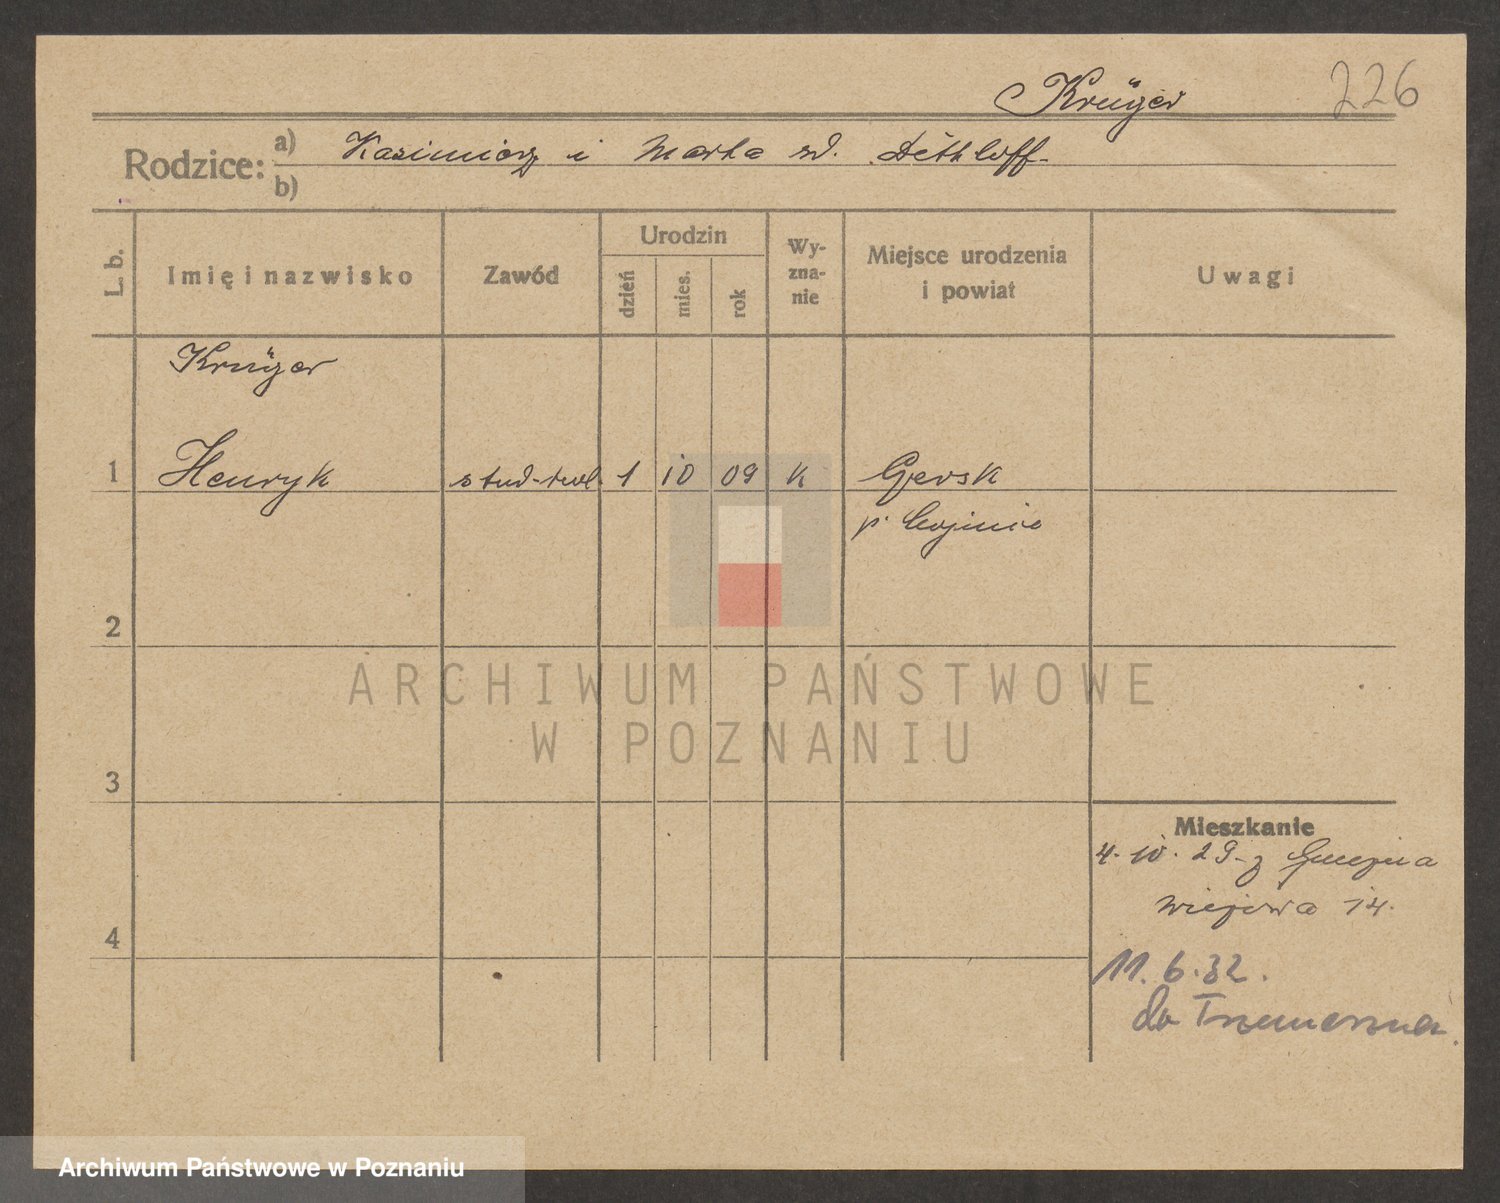 Krüger 226
Rodzice: a) Kazimierz i Marta zd. Dethloff
b)
L. b. Imię i nazwisko Zawód Urodzin dzień mies. rok Wyznanie Miejsce urodzenia i powiat Uwagi
Krüger
1 Henryk 1 10 09 k Czersk
p.
2
ARCHIWUM PAŃSTWOWE
W POZNANIU
3
Mieszkanie
4. 10. 29 z Gniezna
14.
4
11. 6. 32.
do Trzemeszna.
Archiwum Państwowe w Poznaniu